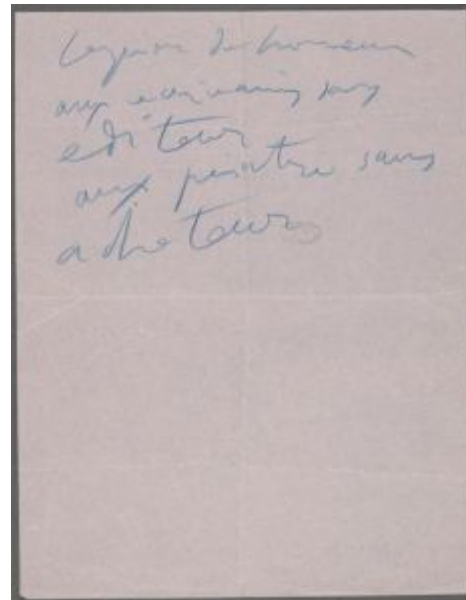 Legion d'honneur
aux ecrivains sans
editeur
aux peintre sans
acheteurs